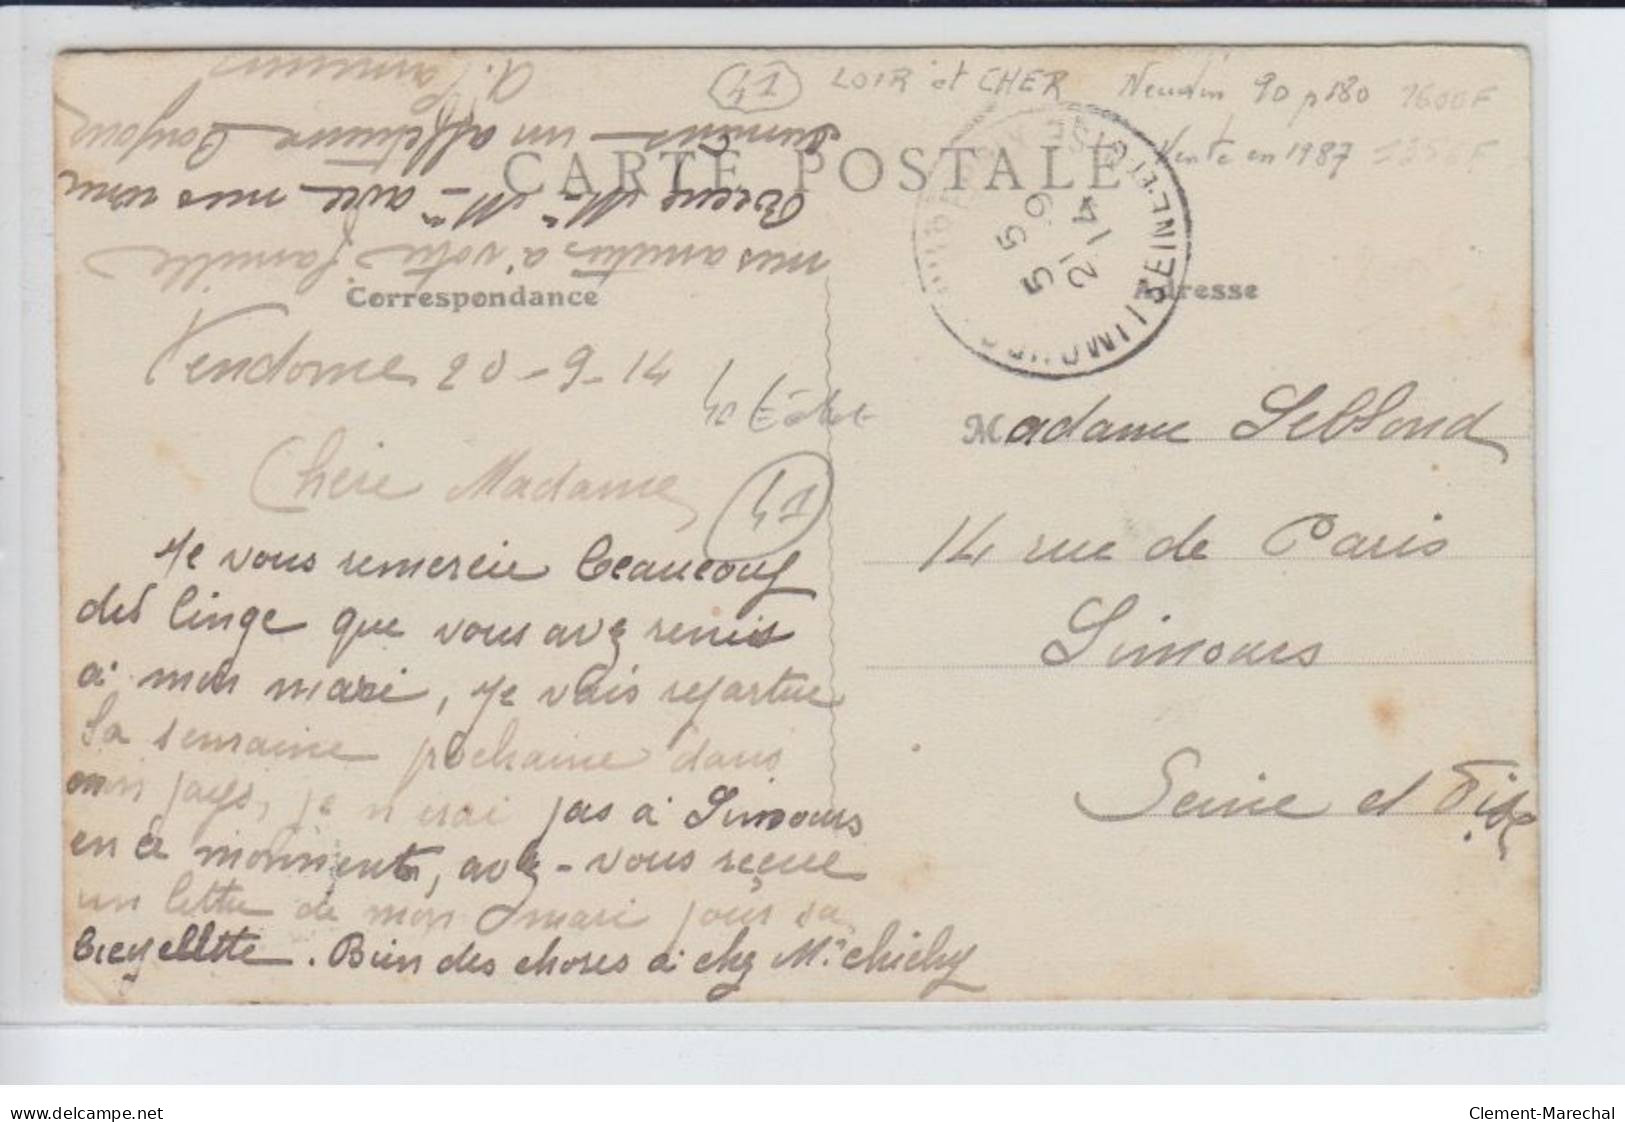 LOIR et CHER Neudin 90 p 180 1600F
41
Vente en 1987
CARTE POSTALE
Correspondance
Adresse
Vendome 20-9-14
Chère Madame
41
Je vous remercie beaucoup
des linge que vous avez remis
a mon mari, je vais repartue
la semaine prochaine dans
mon pays, je n'erai pas a Limours
en ce momment, avez-vous reçue
un lettre de mon mari pour sa
bicyclette. Bien des choses a chez Mr chichy
mes amitiés a votre famille
Recevez Mr Mme avec mes remer
ciements un affectueux Bonjour
Madame Leblond
14 rue de Paris
Limours
Seine et Oise
LIMOURS
SEINE-ET-OISE
5 55
21-9
14
www.delcampe.net
Clement-Marechal